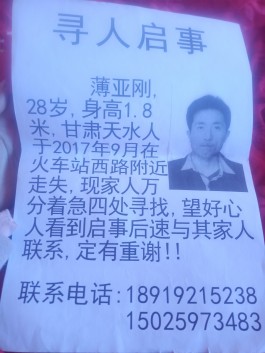 寻人启事
薄亚刚,
28岁,身高1.8
米,甘肃天水人
于2017年9月在
火车站西路附近
走失,现家人万
分着急四处寻找,望好心
人看到启事后速与其家人
联系,定有重谢!!
联系电话:18919215238
15025973483